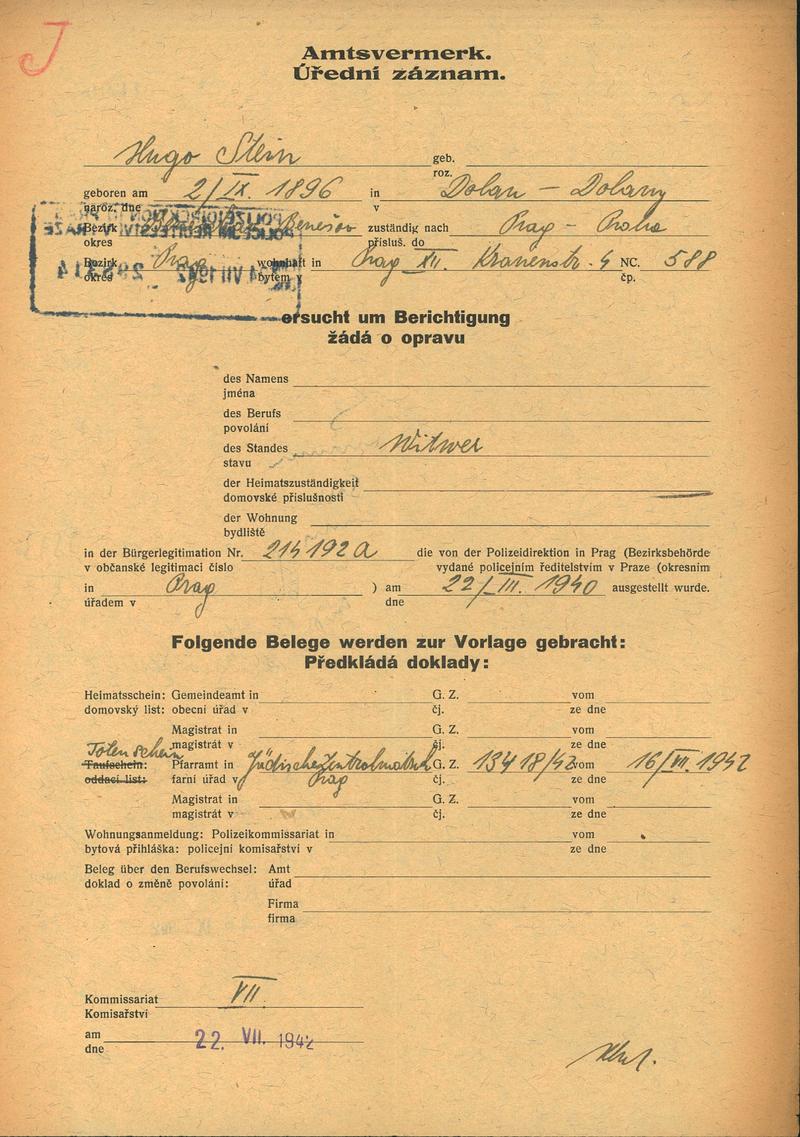 J
Amtsvermerk.
Úřední záznam.
Hugo Stein geb.
roz.
geboren am 2/IX. 1896 in Dolan – Dolany
naroz. dne v
Bezirk Benešov zuständig nach Prag – Praha
okres přísluš. do
Bezirk Prag wohnhaft in Prag XII. Kranenstr. 4 NC. 588
okres bytem v čp.
ersucht um Berichtigung
žádá o opravu
des Namens
jména
des Berufs
povolání
des Standes Witwer
stavu
der Heimatszuständigkeit
domovské příslušnosti
der Wohnung
bydliště
in der Bürgerlegitimation Nr. 214192a die von der Polizeidirektion in Prag (Bezirksbehörde
v občanské legitimaci číslo vydané policejním ředitelstvím v Praze (okresním
in Prag ) am 22/III. 1940 ausgestellt wurde.
úřadem v dne
Folgende Belege werden zur Vorlage gebracht:
Předkládá doklady:
Heimatsschein: Gemeindeamt in G. Z. vom
domovský list: obecní úřad v čj. ze dne
Magistrat in G. Z. vom
Totenschein magistrát v čj. ze dne
Taufschein: Pfarramt in Jüdische Zentralmatrik G. Z. 13418/42 vom 16/VII. 1942
oddací list: farní úřad v Prag čj. ze dne
Magistrat in G. Z. vom
magistrát v čj. ze dne
Wohnungsanmeldung: Polizeikommissariat in vom
bytová přihláška: policejní komisařství v ze dne
Beleg über den Berufswechsel: Amt
doklad o změně povolání: úřad
Firma
firma
Kommissariat VII
Komisařství
am 22. VII. 1942
dne